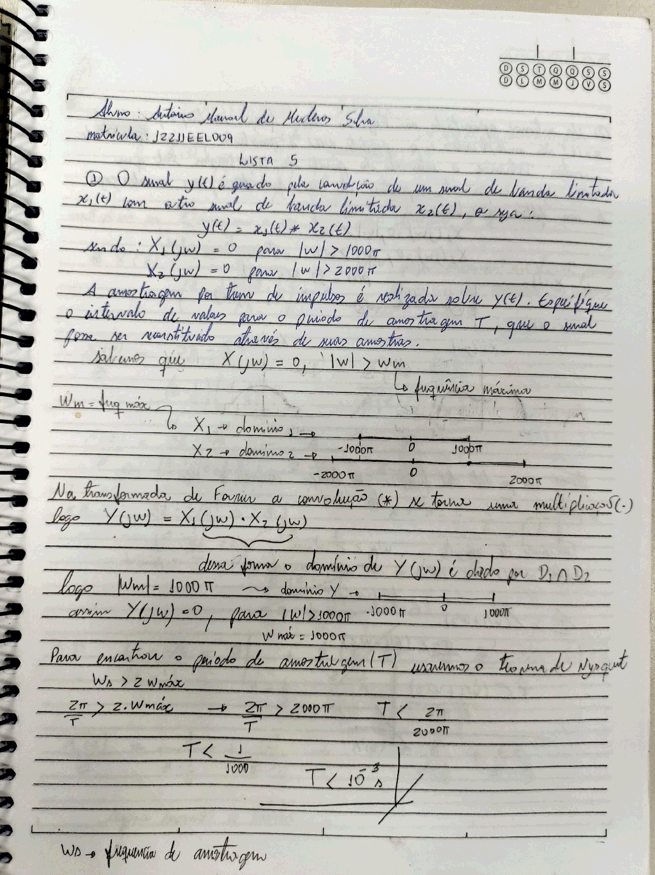 D S T Q Q S S
D L M M J V S
Aluno: Antônio Manoel de Medeiros Silva
matrícula: J221IEEL009
LISTA 5
① O sinal y(t) é gerado pela convolução de um sinal de banda limitada
x₁(t) com outro sinal de banda limitada x₂(t), ou seja:
y(t) = x₁(t) * x₂(t)
sendo: X₁(jw) = 0 para |w| > 1000π
X₂(jw) = 0 para |w| > 2000π
A amostragem por trem de impulsos é realizada sobre y(t). Especifique
o intervalo de valores para o período de amostragem T, que o sinal
possa ser reconstituído através de suas amostras.
sabemos que X(jw) = 0, |w| > wm
↳ frequência máxima
wm = freq máx
↳ X₁ → domínio₁ → -1000π 0 1000π
X₂ → domínio₂ → -2000π 0 2000π
Na transformada de Fourier a convolução (*) se torna uma multiplicação (·)
logo Y(jw) = X₁(jw) · X₂(jw)
dessa forma o domínio de Y(jw) é dado por D₁ ∩ D₂
logo |wm| = 1000π → domínio Y → -1000π 0 1000π
assim Y(jw) = 0, para |w| > 1000π
w máx = 1000π
Para encontrar o período de amostragem (T) usaremos o teorema de Nyquist
Ws > 2 wmáx
2π/T > 2 · wmáx → 2π/T > 2000π T < 2π/2000π
T < 1/1000
T < 10⁻³ s
Ws → frequencia de amostragem